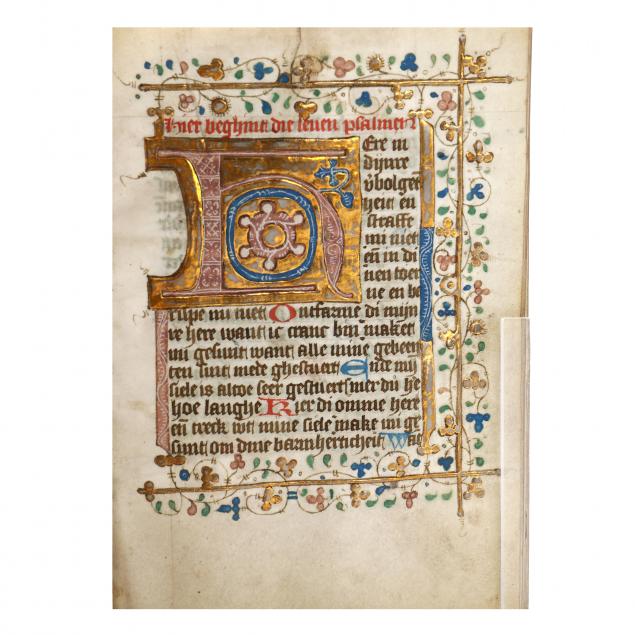 Hier beghint die seuen psalmen
Ere in
dijnre
v̄bolgen
heit en
straffe
mi niet
en̄ in di
nen toer
ne en be
rispe mi niet Ontfarme di mijn
re here want ic cranc bin maket
mi gesunt want alle mine gebeen
ten sint mede ghestuert Ende mijn
siele is alwe seer gestuert mer du he
hoe langhe Kier di omme here
en̄ treck wt mine siele make mi ge
sunt om dine barmherticheit Wat